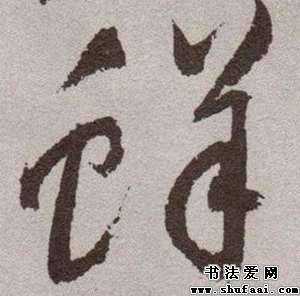 鲜
书法爱网
www.shufaai.com